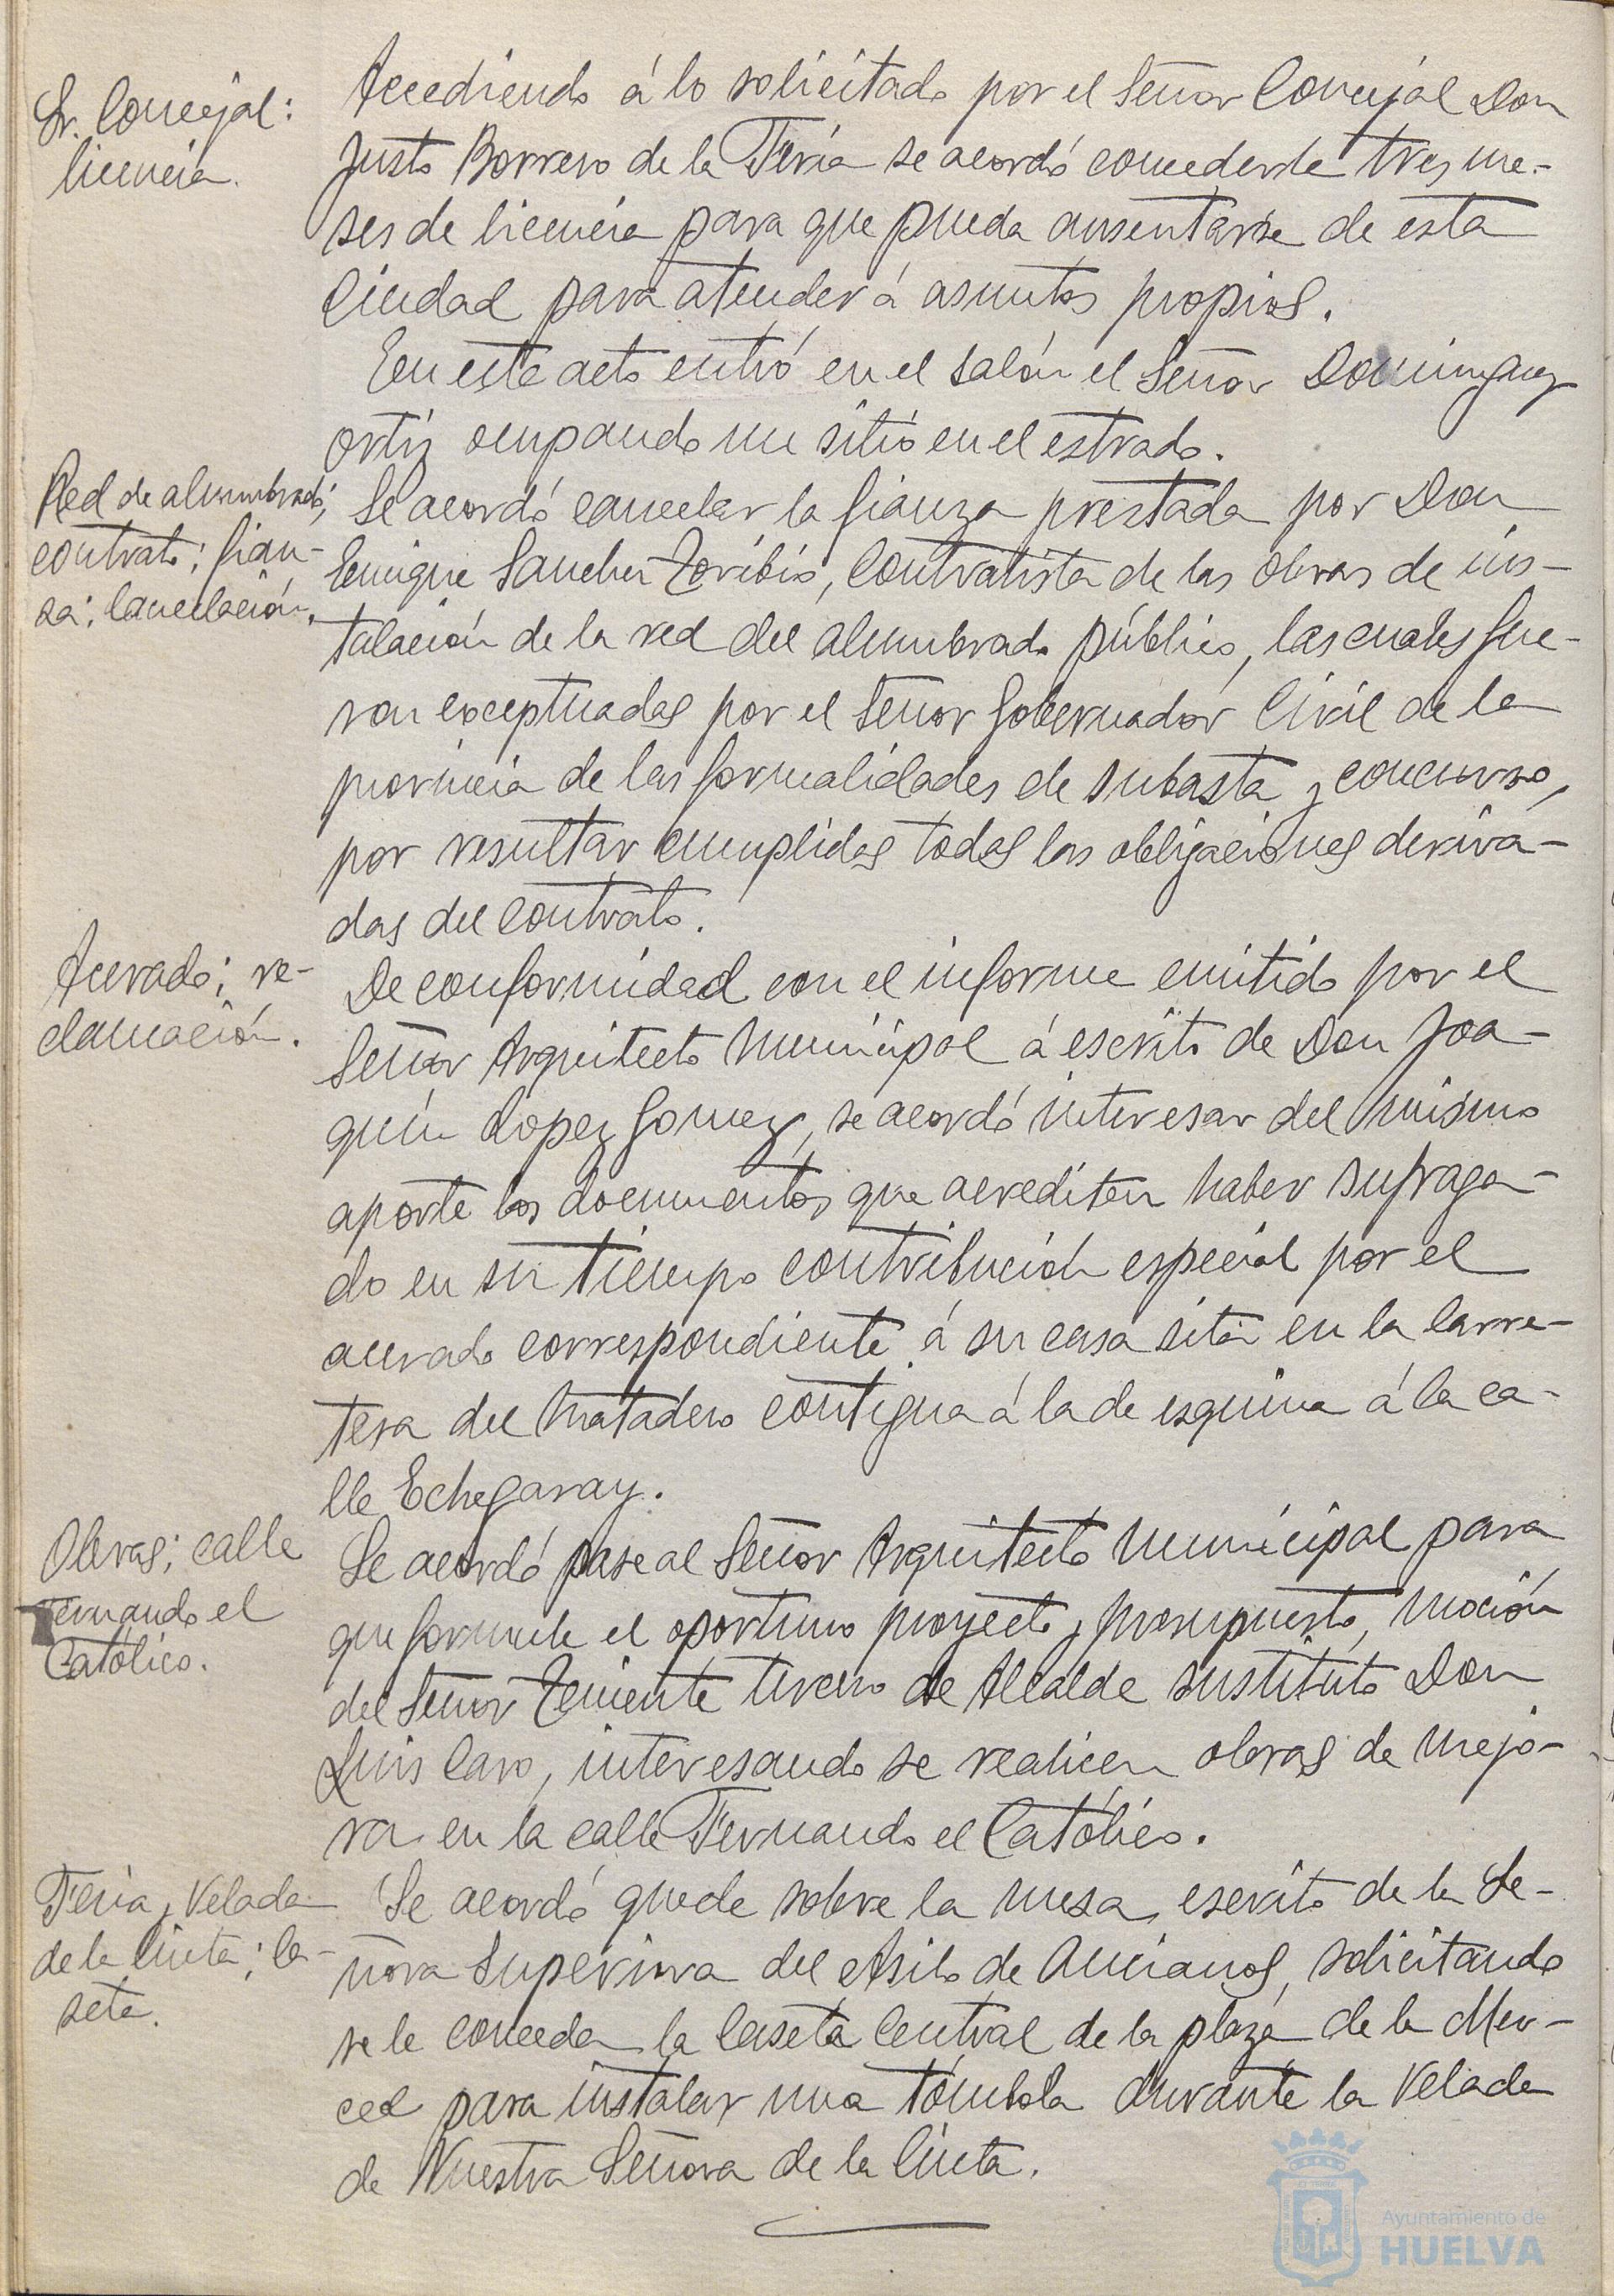 Sr. Concejal:
licencia.
Accediendo á lo solicitado por el Señor Concejal Don
Justo Borrero de la Feria se acordó concederle tres me-
ses de licencia para que pueda ausentarse de esta
Ciudad para atender á asuntos propios.
En este acto entró en el salón el Señor Dominguez
Ortiz ocupando un sitio en el estrado.
Red de alumbrado;
contrato; fian-
za; cancelación.
Se acordó cancelar la fianza prestada por Don
Enrique Sanchez Toribio, Contratista de las obras de ins-
talación de la red del alumbrado público, las cuales fue-
ron exceptuadas por el Señor Gobernador Civil de la
provincia de las formalidades de subasta y concurso,
por resultar cumplidas todas las obligaciones deriva-
das del contrato.
Acerado; re-
clamación.
De conformidad con el informe emitido por el
Señor Arquitecto Municipal á escrito de Don Joa-
quin Lopez Gomez, se acordó interesar del mismo
aporte los documentos que acrediten haber sufraga-
do en su tiempo contribución especial por el
acerado correspondiente á su casa sita en la Carre-
tera del Matadero contigua á la de esquina á la ca-
lle Echegaray.
Obras; calle
Fernando el
Católico.
Se acordó pase al Señor Arquitecto Municipal para
que formule el oportuno proyecto y presupuesto, moción
del Señor Teniente tercero de Alcalde sustituto Don
Luis Caro, interesando se realicen obras de mejo-
ra en la calle Fernando el Católico.
Feria y Velada
de la Cinta; ca-
seta.
Se acordó quede sobre la mesa, escrito de la Se-
ñora Superiora del Asilo de Ancianos, solicitando
se le conceda la Caseta Central de la plaza de la Mer-
ced para instalar una tómbola durante la Velada
de Nuestra Señora de la Cinta.
Ayuntamiento de
HUELVA